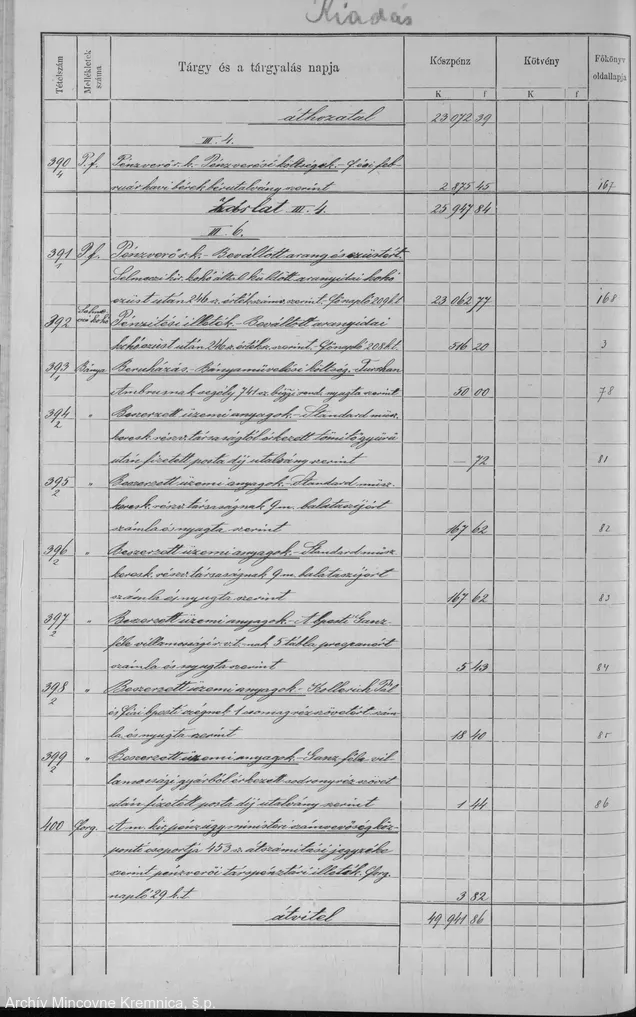 Kiadás
Tételszám
Mellékletek száma
Tárgy és a tárgyalás napja
Készpénz
Kötvény
Főkönyv oldallapja
K f K f
áthozatal 23 072 39
III. 4.
390/4 P.f. Pénzverő s.k.- Pénzverési költségek.- feb-
ruár havi bérek bérutalvány szerint 2 875 45 167
Zárlat III. 4. 25 947 84
III. 6.
391/1 P.f. Pénzverő s.k.- Beváltott arany és ezüstért.
Selmeczi kir. kohó által küldött aranyitai kohó
ezüst után 246 s. értékszáma szerint. 209 k.t. 23 062 77 168
392 Pénzitési illeték.- Beváltott aranyitai
kohóezüst után 246 s. szerint. 208 k.t. 516 20 3
393/1 Bánya Beruházás.- Bányaművelési költség.
Ambrusnak segély 741 sz. rend. nyugta szerint 50 00 78
394/2 " Beszerzett üzemi anyagok.- Standard műsz.
keresk. rész. társaságtól érkezett tömítőgyűrű
után fizetett posta díj utalvány szerint — 72 81
395/2 " Beszerzett üzemi anyagok.- Standard műsz.
keresk. rész. társaságnak 9 m. balataszíjért
számla és nyugta szerint 167 62 82
396/2 " Beszerzett üzemi anyagok.- Standard műsz
keresk. rész. társaságnak 9 m. balataszíjért
számla és nyugta szerint 167 62 83
397/2 " Beszerzett üzemi anyagok.- A bpesti Ganz-
féle villamossági r.t.-nak 5 tábla
számla és nyugta szerint 5 43 84
398/2 " Beszerzett üzemi anyagok.- Kollerich Pál
és fiai bpesti czégnek 1 csomag réz szövetért szám-
la és nyugta szerint 18 40 85
399/2 " Beszerzett üzemi anyagok.- Ganz féle vil-
lamossági gyárból érkezett sodronyréz szövet
után fizetett posta díj utalvány szerint 1 44 86
400 Forg. A m. kir. pénzügyministeri számvevőség köz-
ponti csoportja 453 s. átszámítási jegyzéke
szerint pénzverői illeték. Forg.
napló 29 k.t. 3 82
átvitel 49 941 86
Archív Mincovne Kremnica, š.p.